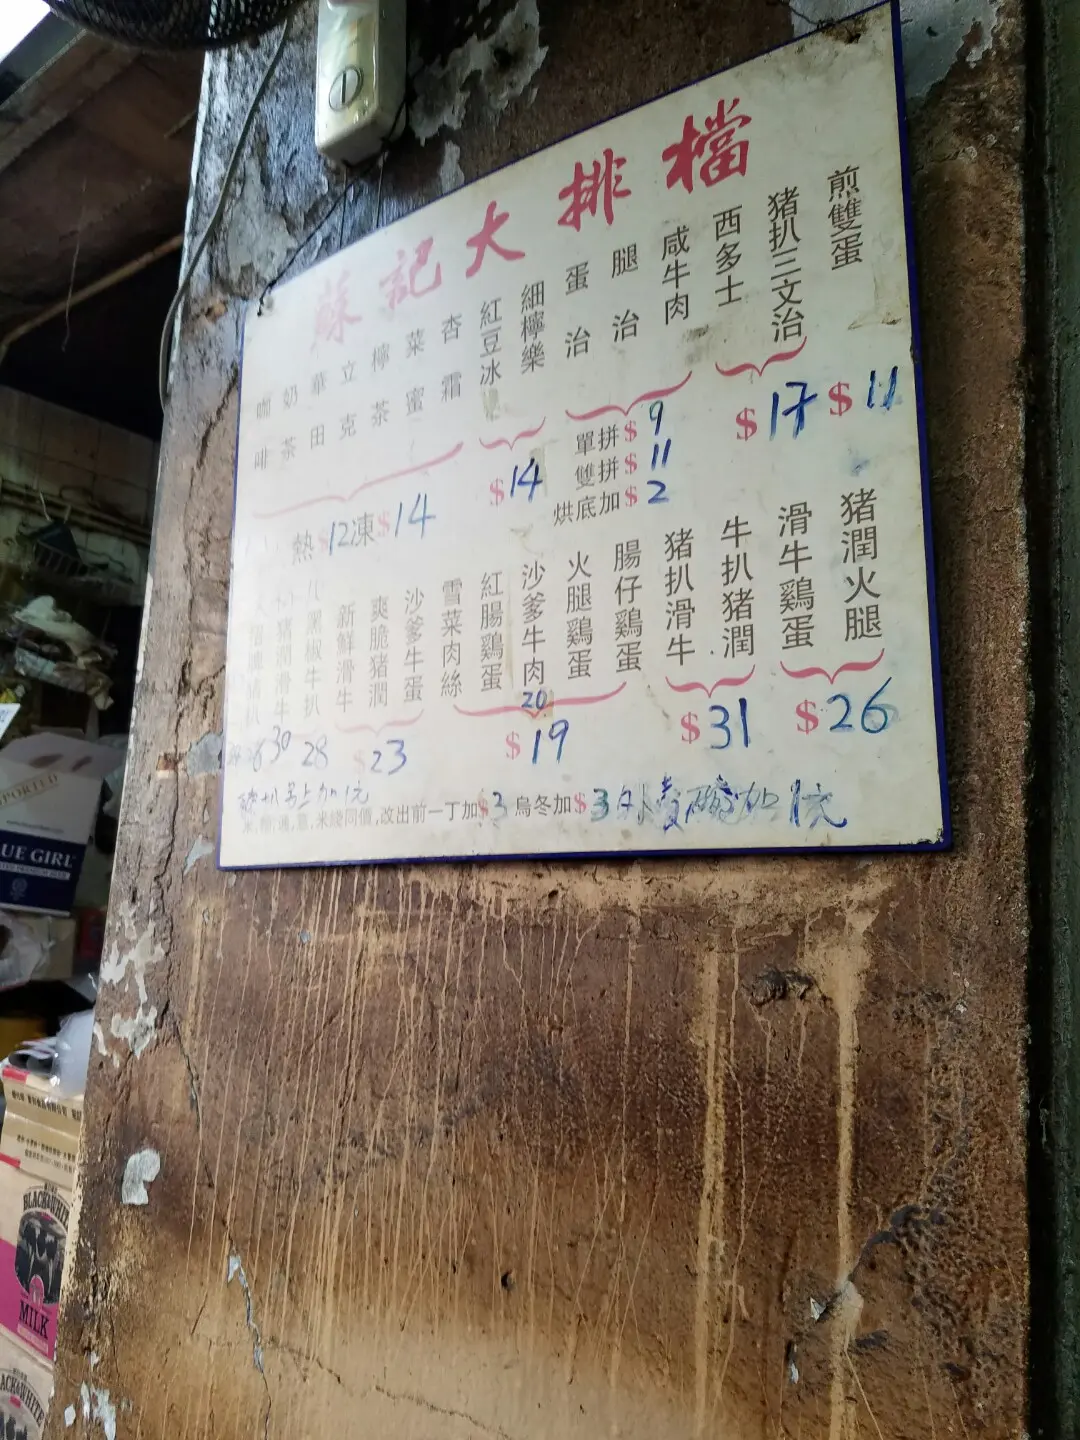 蘇記大排檔
煎雙蛋
$11
豬扒三文治
西多士
$17
咸牛肉
腿治
蛋治
單拼$9
雙拼$11
烘底加$2
細檸樂
紅豆冰
$14
杏霜
菜蜜
檸茶
立克
華田
奶茶
咖啡
熱 12 凍$14
豬潤火腿
滑牛鷄蛋
$26
牛扒豬潤
豬扒滑牛
$31
腸仔鷄蛋
火腿鷄蛋
沙爹牛肉
20
紅腸鷄蛋
雪菜肉絲
$19
沙爹牛蛋
爽脆豬潤
新鮮滑牛
$23
黑椒牛扒
28
豬潤滑牛
30
加1元
米綫同價,改出前一丁加$3 烏冬加$3 外賣碗加1元
UE GIRL
BLACK&WHITE
MILK